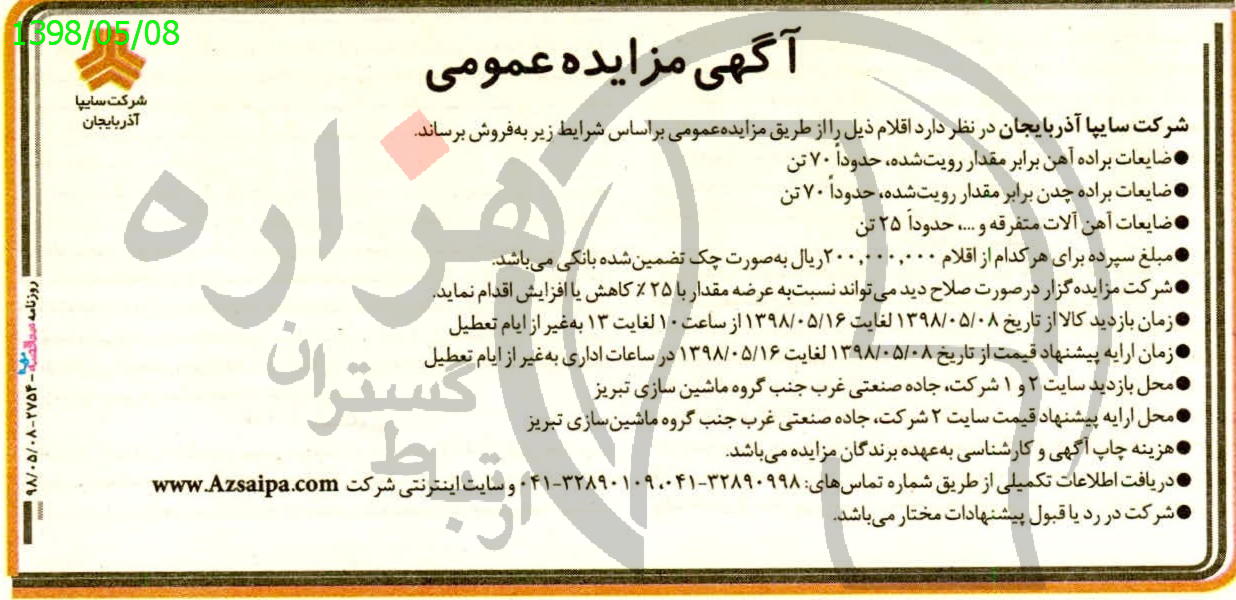 1398/05/08
شرکت سایپا
آذربایجان
آگهی مزایده عمومی
شرکت سایپا آذربایجان در نظر دارد اقلام ذیل را از طریق مزایده‌عمومی براساس شرایط زیر به‌فروش برساند.
●ضایعات براده آهن برابر مقدار رویت‌شده، حدوداً ۷۰ تن
●ضایعات براده چدن برابر مقدار رویت‌شده، حدوداً ۷۰ تن
●ضایعات آهن آلات متفرقه و ...، حدوداً ۲۵ تن
●مبلغ سپرده برای هر کدام از اقلام ۲۰۰,۰۰۰,۰۰۰ ریال به‌صورت چک تضمین‌شده بانکی می‌باشد.
●شرکت مزایده‌گزار درصورت صلاح دید می‌تواند نسبت‌به عرضه مقدار با ۲۵ ٪ کاهش یا افزایش اقدام نماید.
●زمان بازدید کالا از تاریخ ۱۳۹۸/۰۵/۰۸ لغایت ۱۳۹۸/۰۵/۱۶ از ساعت ۱۰ لغایت ۱۳ به‌غیر از ایام تعطیل
●زمان ارایه پیشنهاد قیمت از تاریخ ۱۳۹۸/۰۵/۰۸ لغایت ۱۳۹۸/۰۵/۱۶ در ساعات اداری به‌غیر از ایام تعطیل
●محل بازدید سایت ۲ و ۱ شرکت، جاده صنعتی غرب جنب گروه ماشین سازی تبریز
●محل ارایه پیشنهاد قیمت سایت ۲ شرکت، جاده صنعتی غرب جنب گروه ماشین‌سازی تبریز
●هزینه چاپ آگهی و کارشناسی به‌عهده برندگان مزایده می‌باشد.
●دریافت اطلاعات تکمیلی از طریق شماره تماس‌های: ۳۲۸۹۰۹۹۸-۰۴۱، ۳۲۸۹۰۱۰۹-۰۴۱ و سایت اینترنتی شرکت www.Azsaipa.com
●شرکت در رد یا قبول پیشنهادات مختار می‌باشد.
هزاره
گستران
ارتباط
روزنامه - ۲۷۵۴-۹۸/۰۵/۰۸